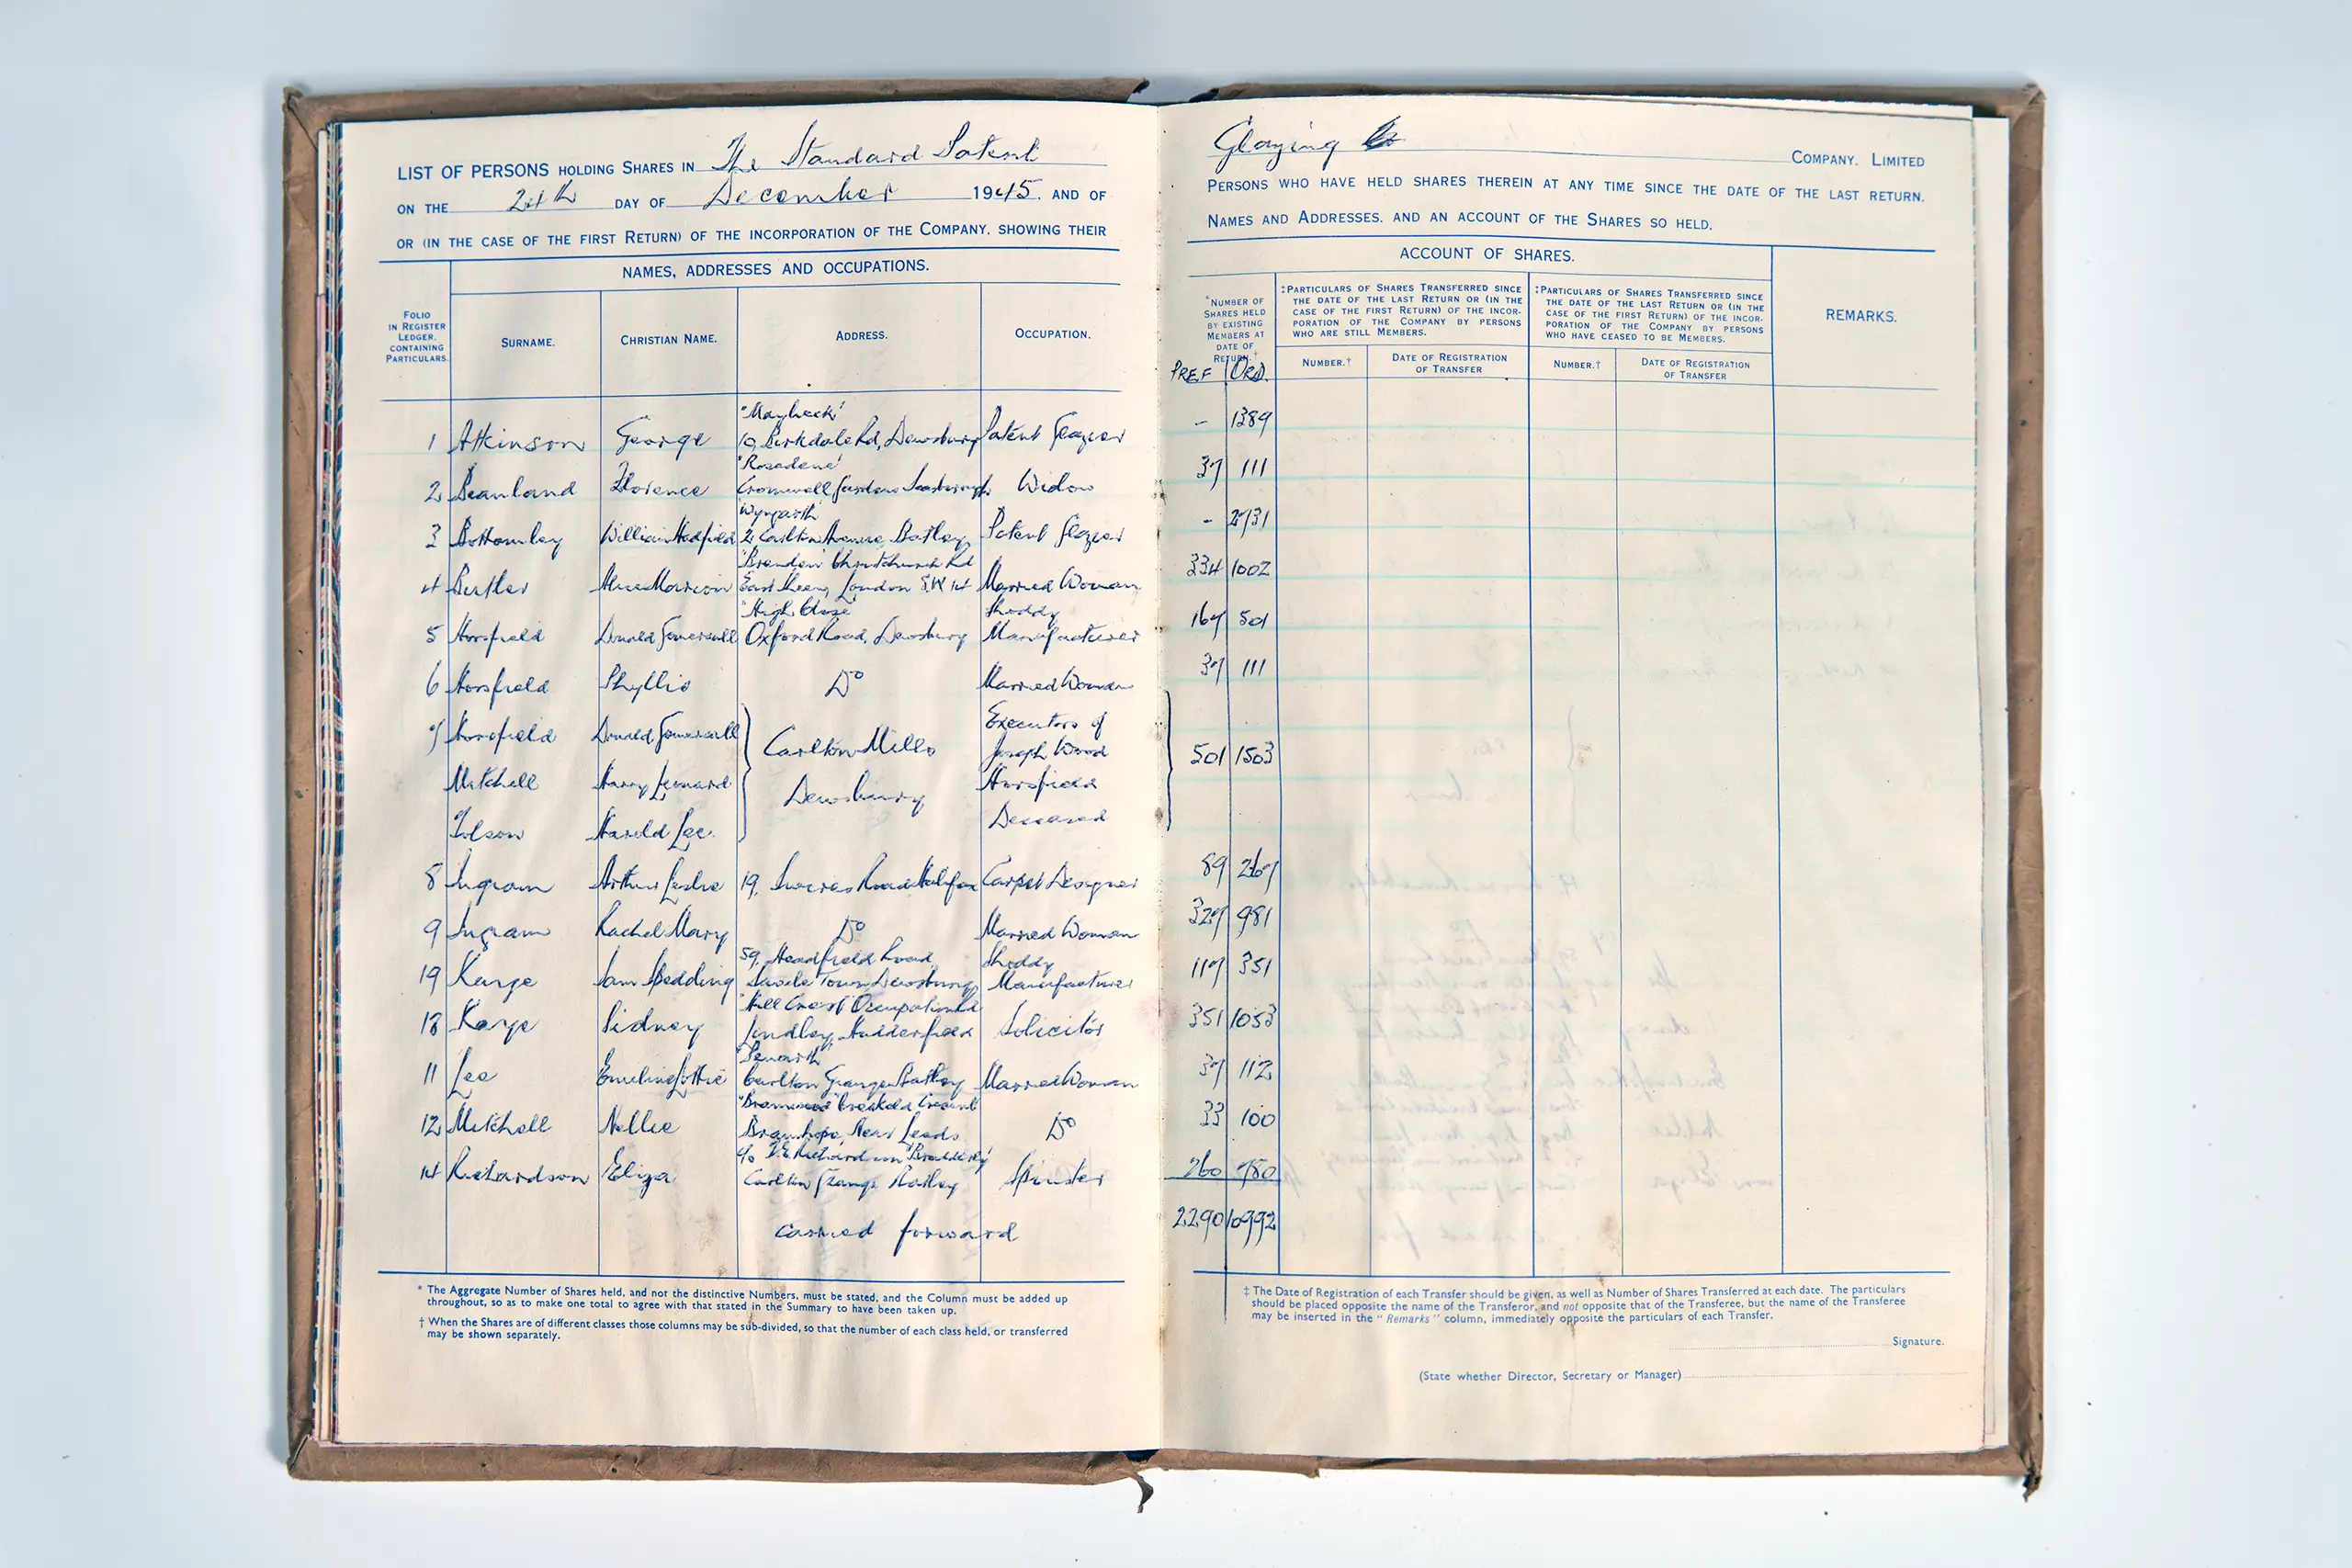 LIST OF PERSONS HOLDING SHARES IN The Standard Patent
ON THE 24th DAY OF December 1945. AND OF
OR (IN THE CASE OF THE FIRST RETURN) OF THE INCORPORATION OF THE COMPANY, SHOWING THEIR
NAMES, ADDRESSES AND OCCUPATIONS.
FOLIO
IN REGISTER
LEDGER,
CONTAINING
PARTICULARS.
SURNAME.
CHRISTIAN NAME.
ADDRESS.
OCCUPATION.
1 Atkinson George 10, Birkdale Rd, Dewsbury Patent Glazier
"Rosedene"
2 Beanland Florence Cromwell Gardens Widow
3 Bottomley William Hadfield 2 Carlton Avenue, Batley Patent Glazier
Christchurch Rd
4 Butler Alice Marion East Sheen, London S.W 14 Married Woman
"High Close" Shoddy
5 Horsfield Donald Gomersall Oxford Road, Dewsbury Manufacturer
6 Horsfield Phyllis Do Married Woman
7 Horsfield Donald Gomersall Executors of
Carlton Mills Joseph Wood
Mitchell Harry Leonard Horsfield
Dewsbury Deceased
Tolson Harold Lee
8 Ingram Arthur Leslie 19, Road Halifax Carpet Designer
9 Ingram Rachel Mary Do Married Woman
59, Headfield Road Shoddy
19 Kaye Sam Spedding Savile Town Dewsbury Manufacturer
"Hill Crest" Occupation Rd
18 Kaye Sidney Lindley, Huddersfield Solicitor
11 Lee Emeline Lottie Carlton Grange Batley Married Woman
12 Mitchell Nellie Bramhope, Near Leeds Do
14 Richardson Eliza Carlton Grange Batley Spinster
carried forward
* The Aggregate Number of Shares held, and not the distinctive Numbers, must be stated, and the Column must be added up
throughout, so as to make one total to agree with that stated in the Summary to have been taken up.
† When the Shares are of different classes those columns may be sub-divided, so that the number of each class held, or transferred
may be shown separately.
Glazing COMPANY, LIMITED
PERSONS WHO HAVE HELD SHARES THEREIN AT ANY TIME SINCE THE DATE OF THE LAST RETURN.
NAMES AND ADDRESSES, AND AN ACCOUNT OF THE SHARES SO HELD.
ACCOUNT OF SHARES.
*NUMBER OF
SHARES HELD
BY EXISTING
MEMBERS AT
DATE OF
RETURN.†
PREF ORD.
‡PARTICULARS OF SHARES TRANSFERRED SINCE
THE DATE OF THE LAST RETURN OR (IN THE
CASE OF THE FIRST RETURN) OF THE INCOR-
PORATION OF THE COMPANY BY PERSONS
WHO ARE STILL MEMBERS.
NUMBER.†
DATE OF REGISTRATION
OF TRANSFER
‡PARTICULARS OF SHARES TRANSFERRED SINCE
THE DATE OF THE LAST RETURN OR (IN THE
CASE OF THE FIRST RETURN) OF THE INCOR-
PORATION OF THE COMPANY BY PERSONS
WHO HAVE CEASED TO BE MEMBERS.
NUMBER.†
DATE OF REGISTRATION
OF TRANSFER
REMARKS.
- 1389
37 111
- 2731
334 1002
167 501
37 111
501 1503
89 267
327 981
117 351
351 1053
37 112
33 100
260 780
2290 10992
‡ The Date of Registration of each Transfer should be given, as well as Number of Shares Transferred at each date. The particulars
should be placed opposite the name of the Transferor, and not opposite that of the Transferee, but the name of the Transferee
may be inserted in the "Remarks" column, immediately opposite the particulars of each Transfer.
Signature.
(State whether Director, Secretary or Manager)